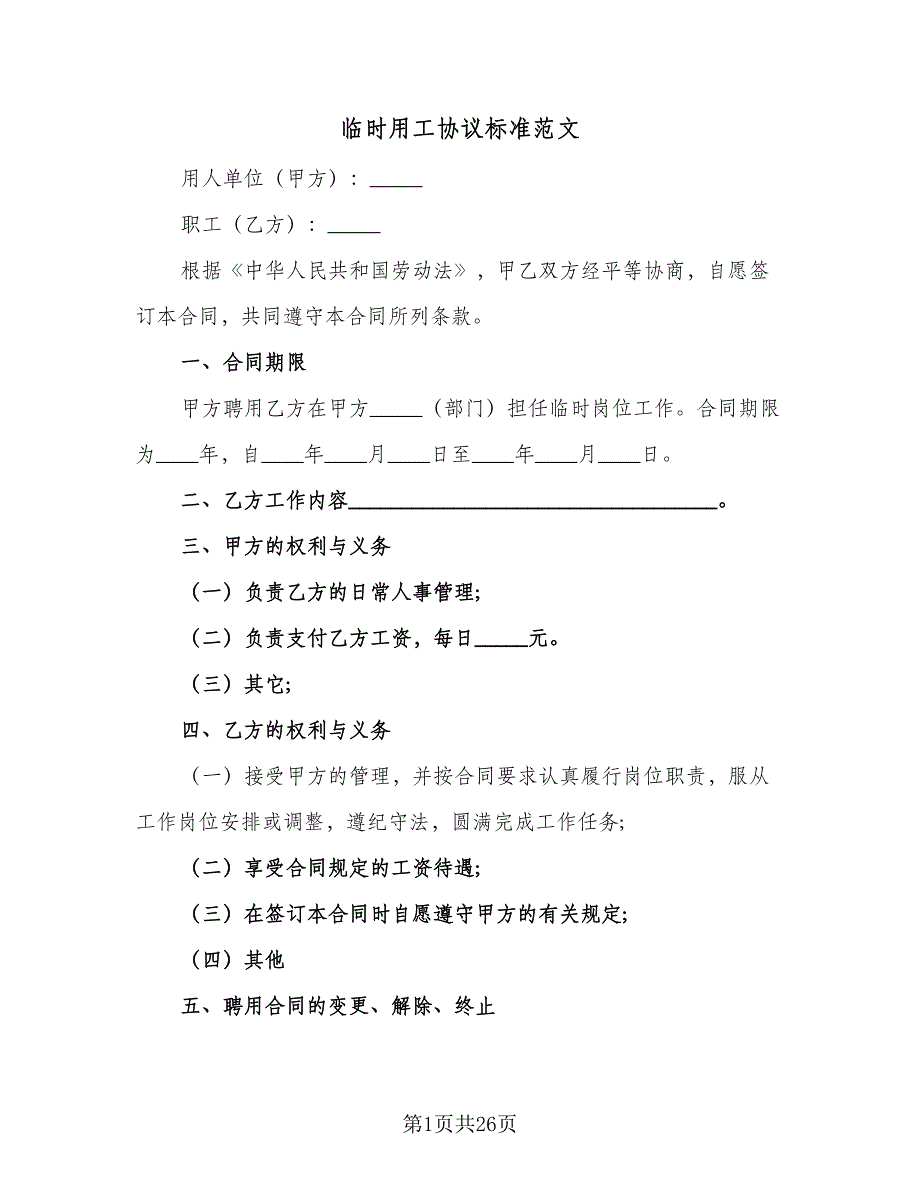 临时用工协议标准范文
用人单位（甲方）：_____
职工（乙方）：_____
根据《中华人民共和国劳动法》，甲乙双方经平等协商，自愿签
订本合同，共同遵守本合同所列条款。
一、合同期限
甲方聘用乙方在甲方_____（部门）担任临时岗位工作。合同期限
为____年，自____年____月____日至____年____月____日。
二、乙方工作内容___________________________________。
三、甲方的权利与义务
（一）负责乙方的日常人事管理;
（二）负责支付乙方工资，每日_____元。
（三）其它;
四、乙方的权利与义务
（一）接受甲方的管理，并按合同要求认真履行岗位职责，服从
工作岗位安排或调整，遵纪守法，圆满完成工作任务;
（二）享受合同规定的工资待遇;
（三）在签订本合同时自愿遵守甲方的有关规定;
（四）其他
五、聘用合同的变更、解除、终止
第1页共26页